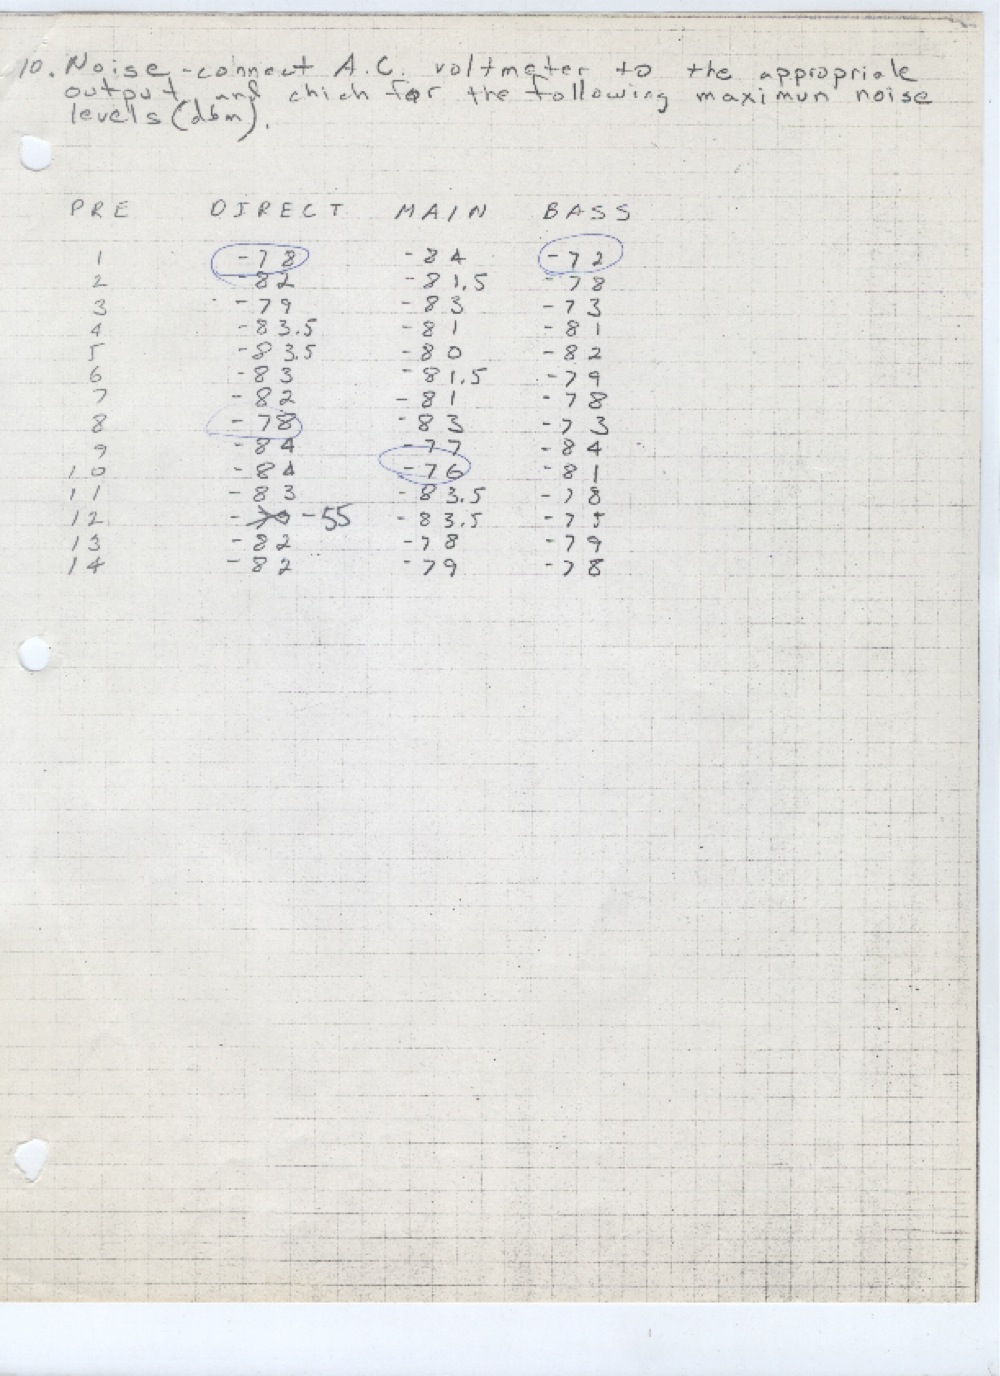 10. Noise -connect A.C. voltmeter to the appropriate
output and chich for the following maximun noise
levels (dbm).
PRE DIRECT MAIN BASS
1 -78 -84 -72
2 -82 -81.5 -78
3 -79 -83 -73
4 -83.5 -81 -81
5 -83.5 -80 -82
6 -83 -81.5 -79
7 -82 -81 -78
8 -78 -83 -73
9 -84 -77 -84
10 -84 -76 -81
11 -83 -83.5 -78
12 -55 -83.5 -75
13 -82 -78 -79
14 -82 -79 -78